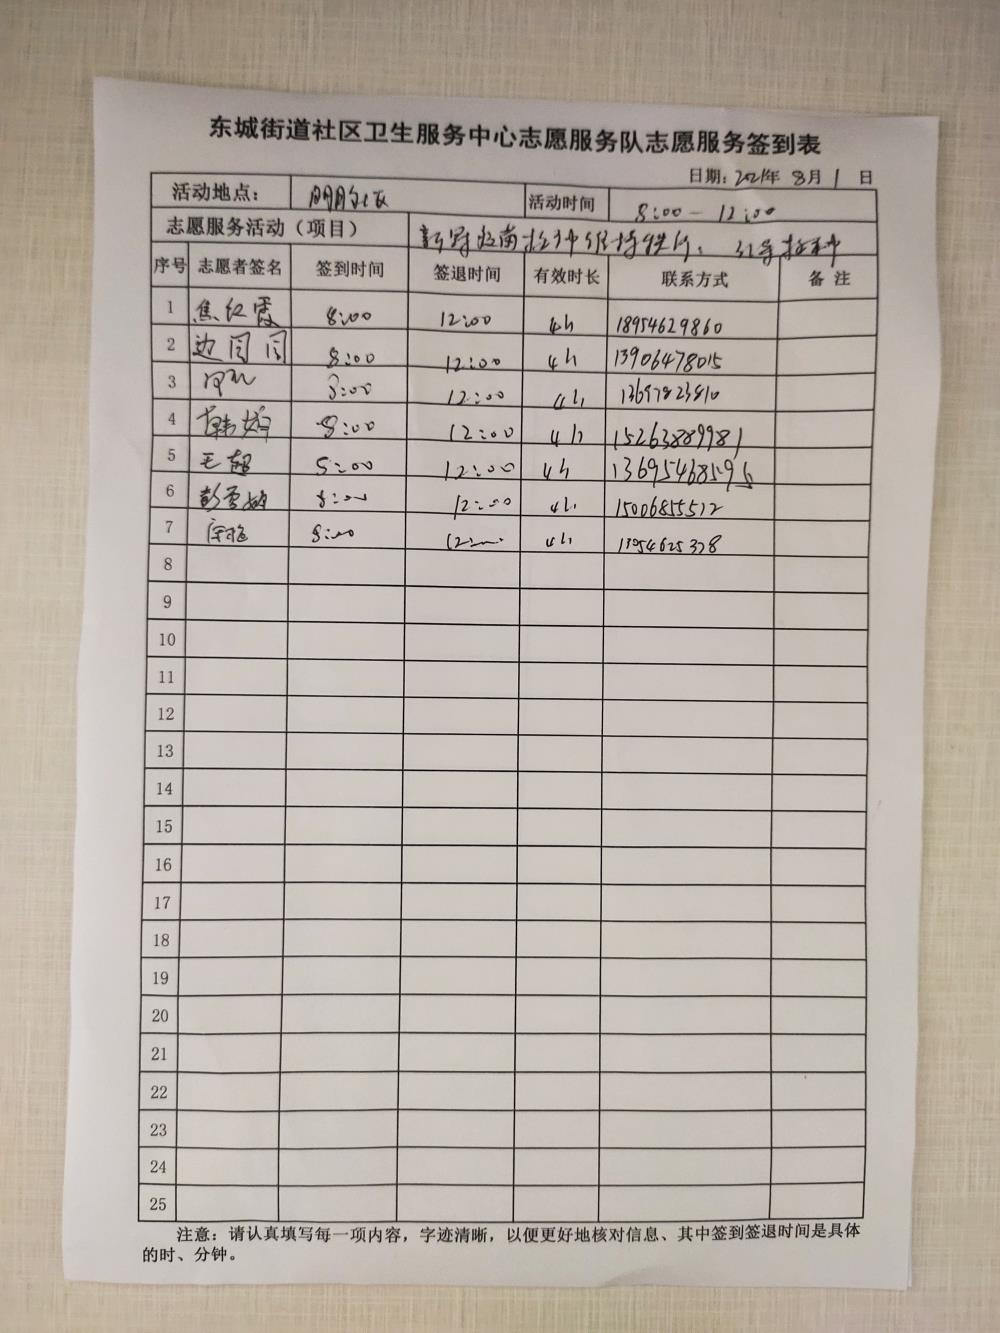 东城街道社区卫生服务中心志愿服务队志愿服务签到表
日期：2021年 8月 1 日
活动地点： 活动时间 8:00 - 12:00
志愿服务活动（项目） 新冠疫苗接种维持秩序、引导接种
序号 志愿者签名 签到时间 签退时间 有效时长 联系方式 备 注
1 焦红霞 8:00 12:00 4h 18954629860
2 边闫闫 8:00 12:00 4h 13906478015
3 8:00 12:00 4h
4 韩婷 8:00 12:00 4h 15263889981
5 王超 8:00 12:00 4h 13695468595
6 彭雪敏 8:00 12:00 4h 15006855512
7 8:00 12:00 4h
8
9
10
11
12
13
14
15
16
17
18
19
20
21
22
23
24
25
注意：请认真填写每一项内容，字迹清晰，以便更好地核对信息、其中签到签退时间是具体
的时、分钟。